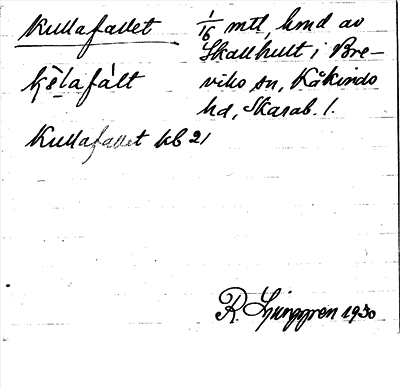 Kullafallet
1/16 mtl, hmd av
Skallhult i Bre-
viks sn, Kåkinds
hd, Skarab. l.
Kullafallet kb 21
R. Ljunggren 1930